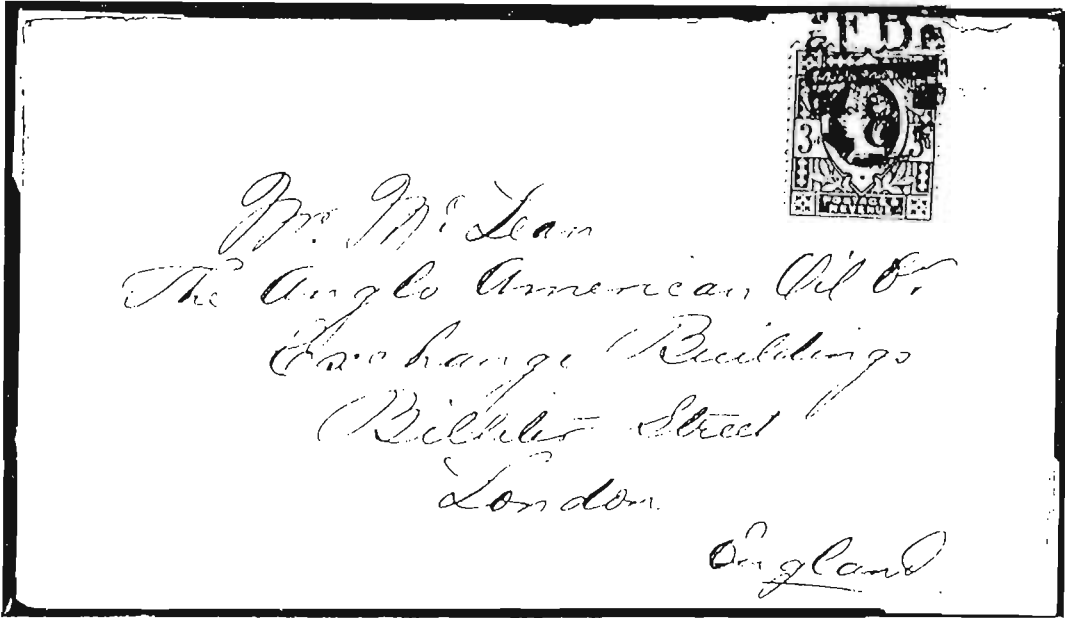 3 3
POSTAGE &
REVENUE
Mr. McLean
The Anglo American Oil Co.
Exchange Buildings
Billiter Street
London
England